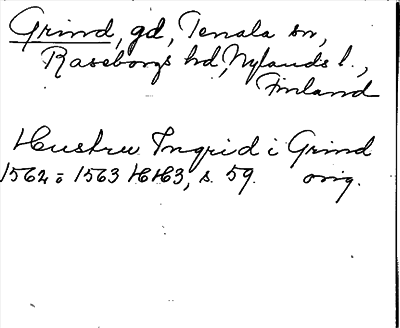 Grind, gd, Tenala sn,
Raseborgs hd, Nylands l.,
Finland
Hustru Ingrid i Grind
1562 = 1563 HH3, s. 59. orig.